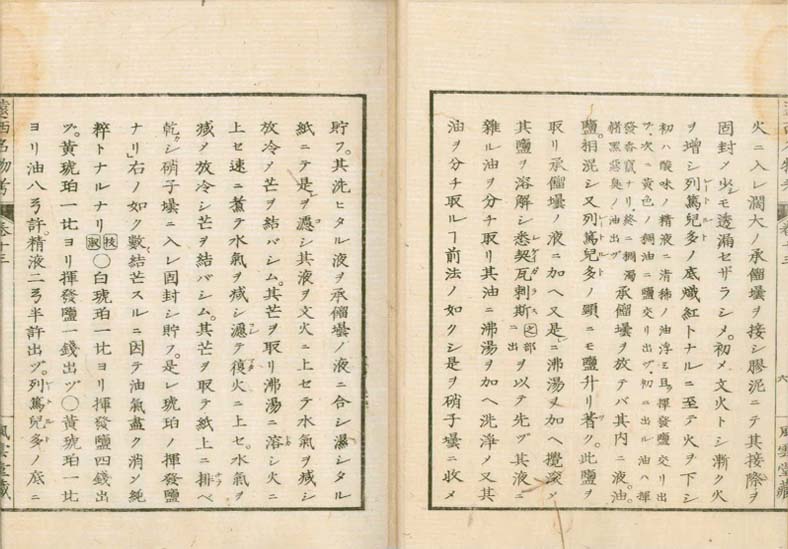 火ニ入レ濶大ノ承餾壜ヲ接シ膠泥ニテ其接際ヲ
固封メ少モ透漏セザラシメ。初メ文火トシ漸ク火
ヲ増シ列篤兒多ノ底熾紅トナルニ至テ火ヲ下シ
レトルト
初ハ酸味ノ精液ニ清稀ノ油浮ミ揮發鹽交リ出
ヅ。次ニ黄色ノ稠油ニ鹽交リ出ヅ。初ニ出ル油ハ揮
發香竄ナリ。終ニ稠濁
楮黑惡臭ノ油出ヅ
承餾壜ヲ放テバ其内ニ液油
鹽。相混シ又列篤兒多ノ頸ニモ鹽升リ著ク。此鹽ヲ
レトルト
取リ承餾壜ノ液ニ加ヘ又是ニ沸湯ヲ加ヘ攪滾メ
其鹽ヲ溶解シ悉契瓦刺斯之部ニ出ヲ以テ先ヅ其液ニ
雜ル油ヲ分チ取リ其油ニ沸湯ヲ加ヘ洗淨メ又其
油ヲ分チ取ルヿ前法ノ如クシ是ヲ硝子壜ニ收メ
六
風雲堂藏
貯フ。其洗ヒタル液ヲ承餾壜ノ液ニ合シ瀑シタル
紙ニテ是ヲ濾シ其液ヲ文火ニ上セテ水氣ヲ減シ
放冷メ芒ヲ結バシム。其芒ヲ取リ沸湯ニ溶シ火ニ
上セ速ニ煮テ水氣ヲ減シ濾テ復火ニ上セ。水氣ヲ
减メ放冷シ芒ヲ結バシム。其芒ヲ取テ紙上ニ排ベ
乾シ硝子壜ニ入レ固封シ貯フ。是レ琥珀ノ揮發鹽
ナリ」右ノ如ク數〻結芒スルニ因テ油氣盡ク消ン純
粹トナルナリ 〇白琥珀一比ヨリ揮發鹽四錢出
ヅ。黄琥珀一比ヨリ揮發鹽一錢出ヅ〇黄琥珀一比
ヨリ油八ゟ許。精液二ゟ半許出ヅ。列篤兒多ノ底ニ
レトルト
遠西名物考
卷十三
風雲堂藏